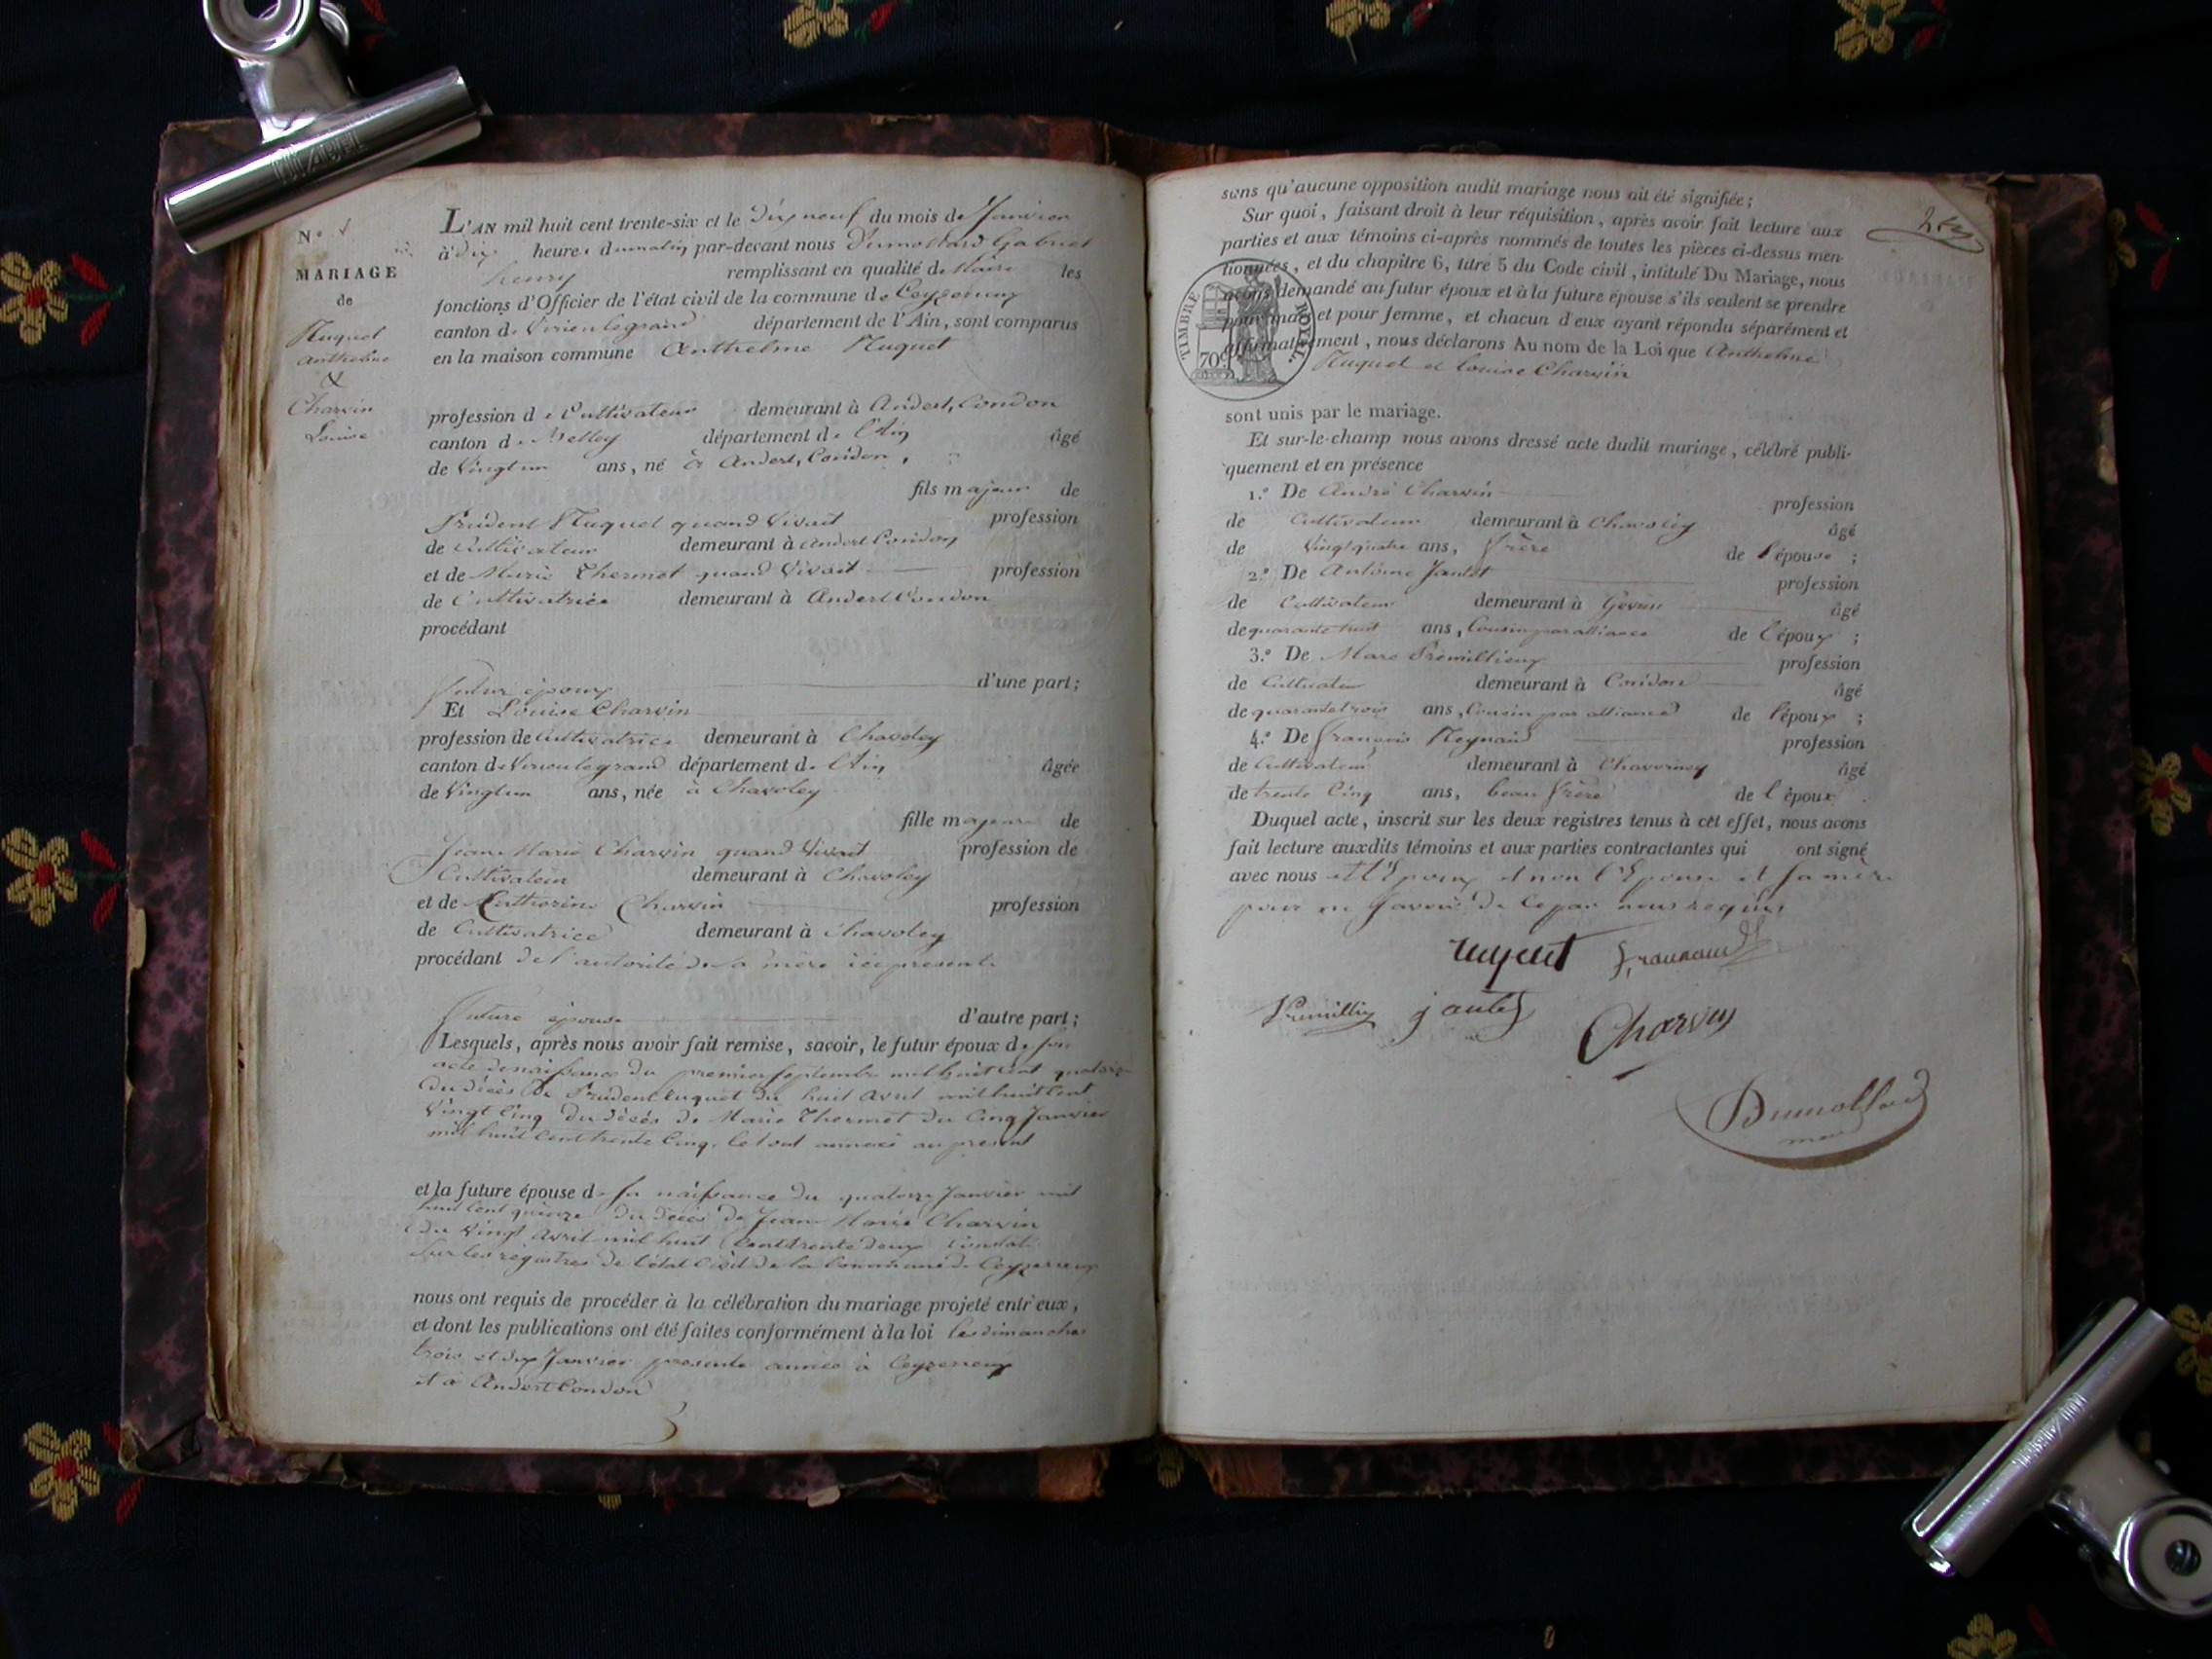 L'AN mil huit cent trente-six et le dix neuf du mois de Janvier
N.º 1
à dix heures du matin par-devant nous Dumollard Gabriel
MARIAGE
henry remplissant en qualité de Maire les
de
fonctions d'Officier de l'état civil de la commune de Ceyzerieux
Huguet
canton de Virieu le grand département de l'Ain, sont comparus
Anthelme
en la maison commune Anthelme Huguet
&
Charvin
Louise
profession de Cultivateur demeurant à Andert, Condon
canton de Belley département de l'Ain âgé
de Vingt un ans, né à Andert, Condon,
fils majeur de
Prudent Huguet quand vivait profession
de Cultivateur demeurant à Andert Condon
et de Marie Thermet quand vivait profession
de Cultivatrice demeurant à Andert Condon
procédant
futur époux d'une part;
Et Louise Charvin
profession de Cultivatrice demeurant à Chavoley
canton de Virieu le grand département de l'Ain âgée
de Vingt un ans, née à Chavoley
fille majeure de
Jean Marie Charvin quand vivait profession de
Cultivateur demeurant à Chavoley
et de Catherine Charvin profession
de Cultivatrice demeurant à Chavoley
procédant de l'autorité de sa mère ici présente
future épouse d'autre part;
Lesquels, après nous avoir fait remise, savoir, le futur époux de son
acte de naissance du premier septembre mil huit cent quatorze
du décès de Prudent huguet du huit avril mil huit cent
Vingt Cinq du décès de Marie Thermet du Cinq Janvier
mil huit cent trente Cinq. le tout annexé au présent
et la future épouse de sa naissance du quatorze Janvier mil
huit cent quinze du décès de Jean Marie Charvin
du Vingt Avril mil huit cent trente deux
sur les registres de l'état civil de la Commune de Ceyzerieux
nous ont requis de procéder à la célébration du mariage projeté entr'eux,
et dont les publications ont été faites conformément à la loi les dimanches
trois et dix Janvier présente année à Ceyzerieux
et à Andert Condon
sans qu'aucune opposition audit mariage nous ait été signifiée;
Sur quoi, faisant droit à leur réquisition, après avoir fait lecture aux
parties et aux témoins ci-après nommés de toutes les pièces ci-dessus men-
tionnées, et du chapitre 6, titre 5 du Code civil, intitulé Du Mariage, nous
avons demandé au futur époux et à la future épouse s'ils veulent se prendre
pour mari et pour femme, et chacun d'eux ayant répondu séparément et
affirmativement, nous déclarons Au nom de la Loi que Anthelme
Huguet et Louise Charvin
TIMBRE ROYAL.
70 c
sont unis par le mariage.
Et sur-le-champ nous avons dressé acte dudit mariage, célébré publi-
quement et en présence
1.º De André Charvin profession
de Cultivateur demeurant à Chavoley âgé
de Vingt quatre ans, frère de l'épouse;
2.º De Antoine Jantet profession
de Cultivateur demeurant à âgé
de quarante huit ans, Cousin par alliance de l'époux;
3.º De Marc Prémillieux profession
de Cultivateur demeurant à Condon âgé
de quarante trois ans, Cousin par alliance de l'époux;
4.º De françois Reynaud profession
de Cultivateur demeurant à âgé
de trente Cinq ans, beau frère de l'époux
Duquel acte, inscrit sur les deux registres tenus à cet effet, nous avons
fait lecture auxdits témoins et aux parties contractantes qui ont signé
avec nous et l'Epoux et non l'Epouse et sa mère
pour ne savoir de ce par nous requis
huguet
Premillieux jantet
Charvin
Dumollard
maire